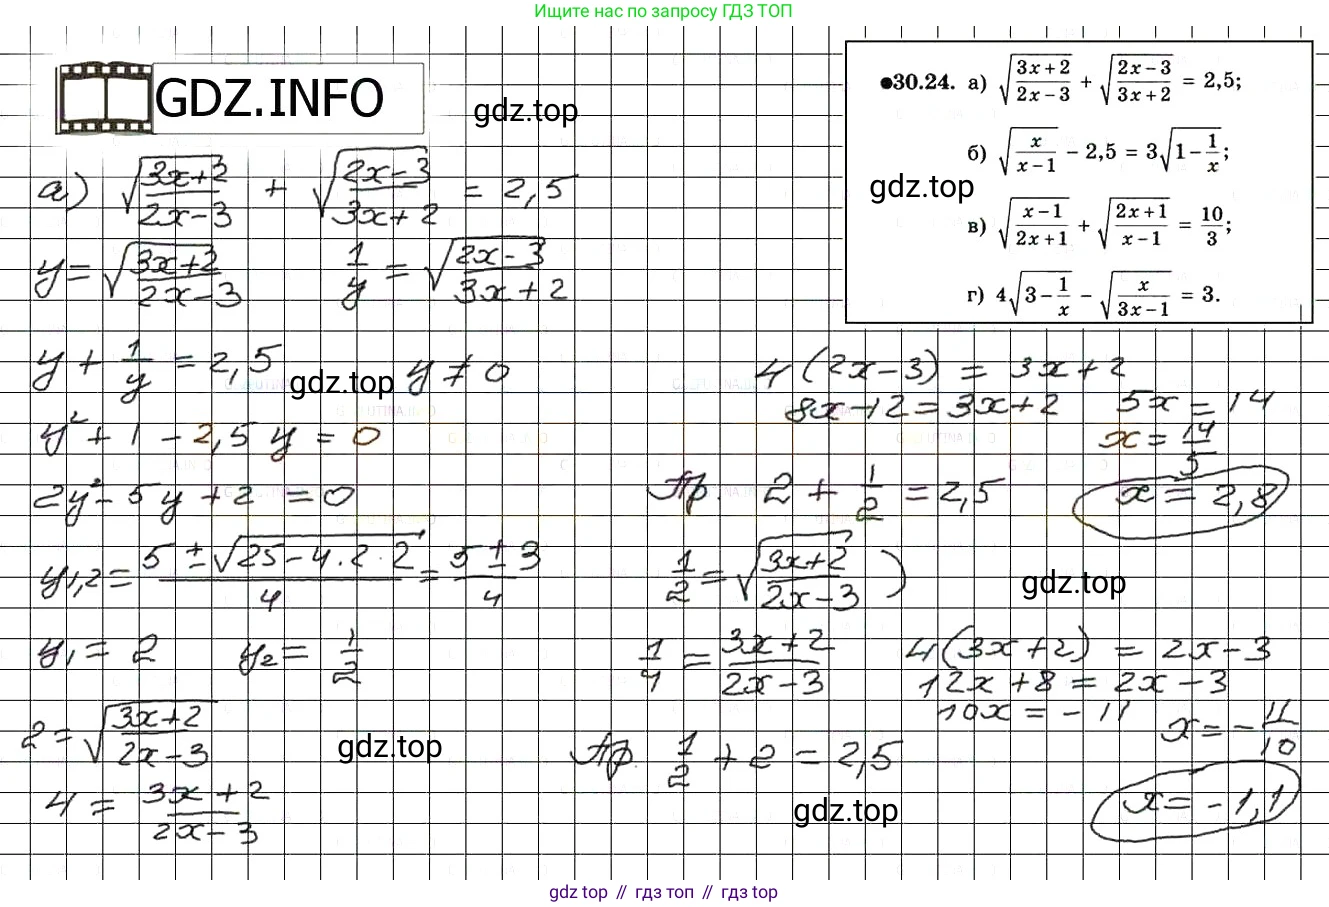 Ищите нас по запросу ГДЗ ТОП
GDZ.INFO
gdz.top
●30.24. а) √((3x + 2)/(2x – 3)) + √((2x – 3)/(3x + 2)) = 2,5;
б) √(x/(x – 1)) – 2,5 = 3√(1 – 1/x);
gdz.top
в) √((x – 1)/(2x + 1)) + √((2x + 1)/(x – 1)) = 10/3;
г) 4√(3 – 1/x) – √(x/(3x – 1)) = 3.
а) √((3x+2)/(2x-3)) + √((2x-3)/(3x+2)) = 2,5
y = √((3x+2)/(2x-3)) 1/y = √((2x-3)/(3x+2))
y + 1/y = 2,5 gdz.top y ≠ 0
y² + 1 - 2,5 y = 0
2y² - 5y + 2 = 0
y1,2 = (5 ± √(25-4·2·2))/4 = (5 ± 3)/4
y1 = 2 y2 = 1/2
2 = √((3x+2)/(2x-3))
gdz.top
4 = (3x+2)/(2x-3)
4(2x-3) = 3x+2
8x-12 = 3x+2 5x = 14
x = 14/5
Пр. 2 + 1/2 = 2,5 x = 2,8
1/2 = √((3x+2)/(2x-3)) )
gdz.top
1/4 = (3x+2)/(2x-3) 4(3x+2) = 2x-3
12x+8 = 2x-3
10x = -11 x = -11/10
Пр. 1/2 + 2 = 2,5
gdz.top
x = -1,1
gdz top // гдз топ // гдз top